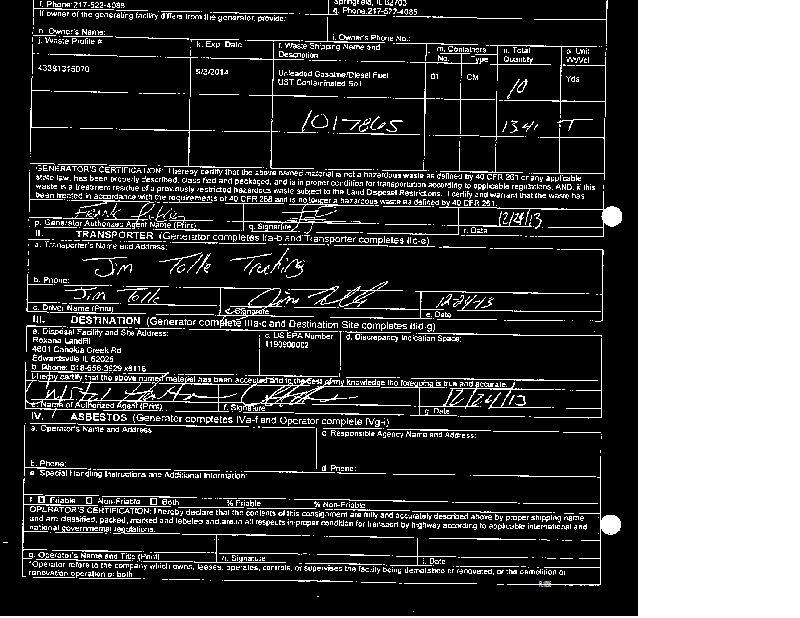 f. Phone:217-522-4085
Springfield, IL 62703
g. Phone:217-522-4085
If owner of the generating facility differs from the generator, provide:
h. Owner's Name:
i. Owner's Phone No.:
j. Waste Profile #
k. Exp. Date
l. Waste Shipping Name and Description
m. Containers
No.
Type
n. Total Quantity
o. Unit Wt/Vol
5/3/2014
Unleaded Gasoline/Diesel Fuel
UST Contaminated Soil
01
CM
10
Yds
1017865
13.41
T
GENERATOR'S CERTIFICATION: I hereby certify that the above named material is not a hazardous waste as defined by 40 CFR 261 or any applicable
state law, has been properly described, classified and packaged, and is in proper condition for transportation according to applicable regulations, AND, if this
waste is a treatment residue of a previously restricted hazardous waste subject to the Land Disposal Restrictions. I certify and warrant that the waste has
been treated in accordance with the requirements of 40 CFR 268 and is no longer a hazardous waste as defined by 40 CFR 261.
Frank
12/24/13
p. Generator Authorized Agent Name (Print)
q. Signature
r. Date
II. TRANSPORTER (Generator completes IIa-b and Transporter completes IIc-e)
a. Transporter's Name and Address:
Jim Tolle Trucking
b. Phone:
Jim Tolle
Jim Tolle
12-24-13
c. Driver Name (Print)
d. Signature
e. Date
III. DESTINATION (Generator complete IIIa-c and Destination Site completes IIId-g)
a. Disposal Facility and Site Address:
c. US EPA Number
d. Discrepancy Indication Space:
Roxana Landfill
1190900002
4601 Cahokia Creek Rd
Edwardsville IL 62025
b. Phone: 618-656-3929 x6116
I hereby certify that the above named material has been accepted and to the best of my knowledge the foregoing is true and accurate.
12/24/13
e. Name of Authorized Agent (Print)
f. Signature
g. Date
IV. ASBESTOS (Generator completes IVa-f and Operator complete IVg-i)
a. Operator's Name and Address
c. Responsible Agency Name and Address:
b. Phone:
d. Phone:
e. Special Handling Instructions and Additional Information:
f. Friable Non-Friable Both % Friable % Non-Friable
OPERATOR'S CERTIFICATION: I hereby declare that the contents of this consignment are fully and accurately described above by proper shipping name
and are classified, packed, marked and labeled and are in all respects in proper condition for transport by highway according to applicable international and
national governmental regulations.
g. Operator's Name and Title (Print)
h. Signature
i. Date
*Operator refers to the company which owns, leases, operates, controls, or supervises the facility being demolished or renovated, or the demolition or
renovation operation or both